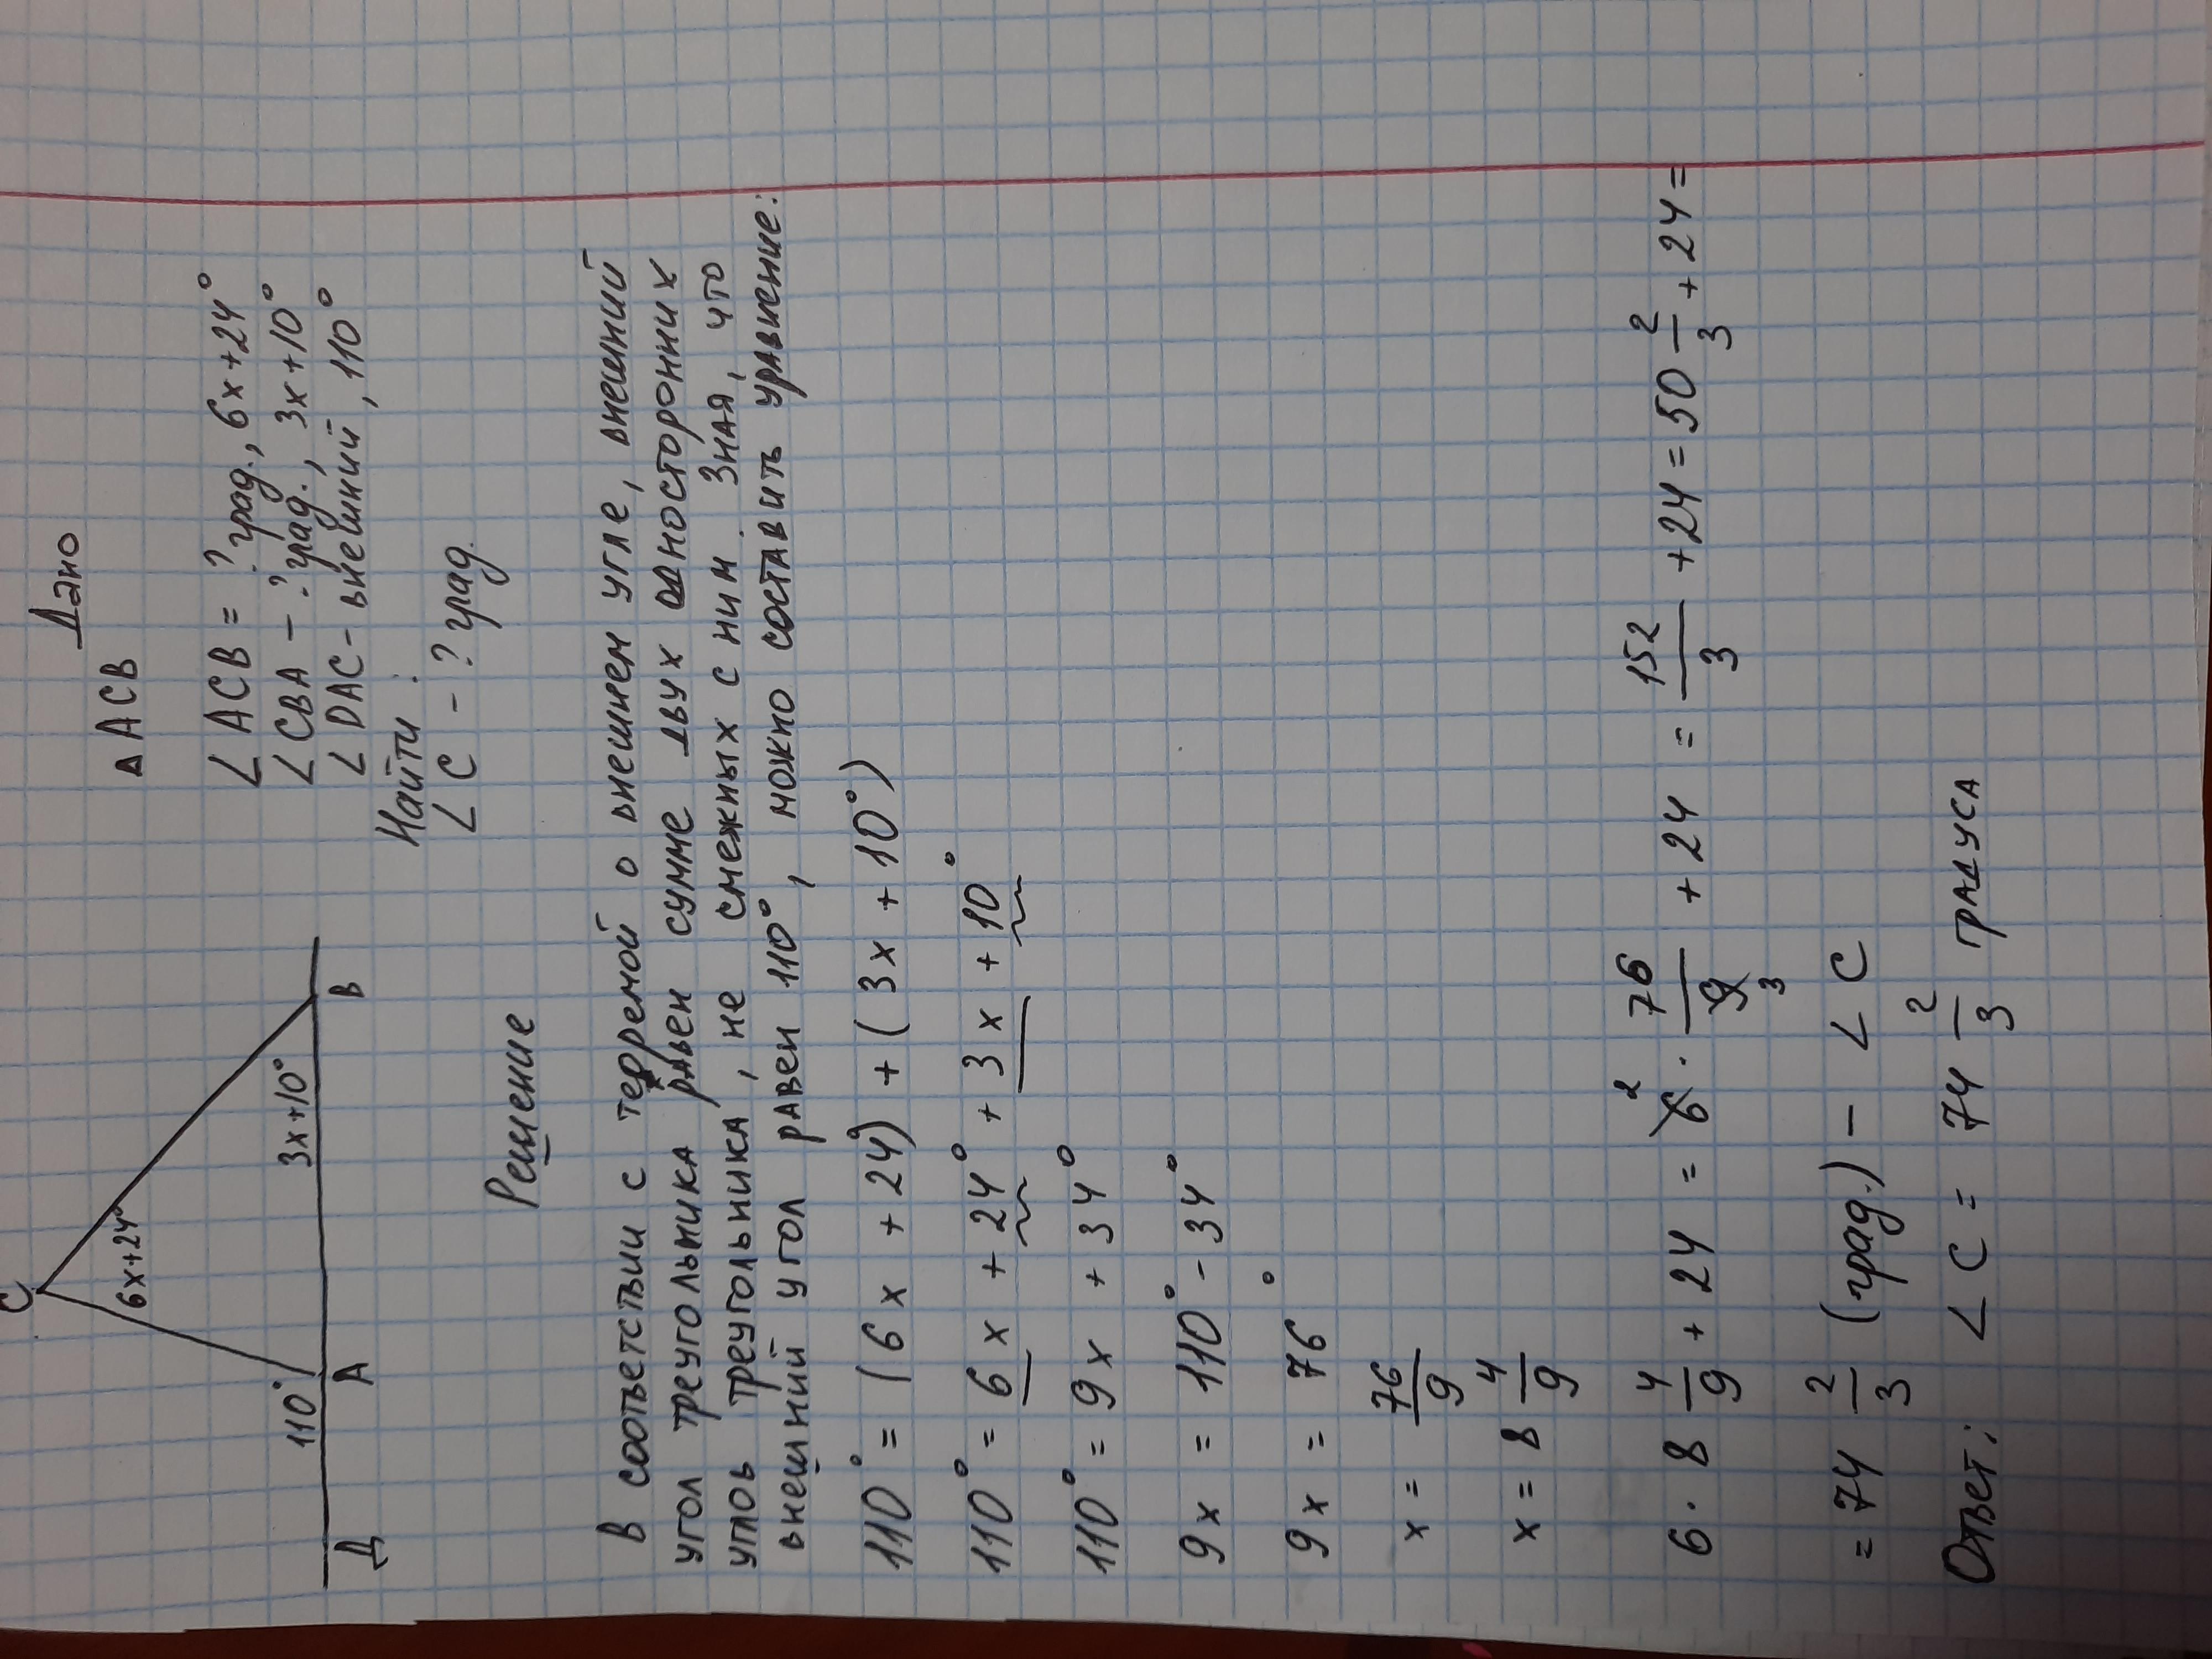 С
6x+24°
110°
3x+10°
Д
А
В
Дано
△ ACB
∠ ACB = ? град., 6x+24°
∠ CBA - ? град., 3x+10°
∠ DAC - внешний, 110°
Найти:
∠ C - ? град.
Решение
В соответствии с терремой о внешнем угле, внешний
угол треугольника равен сумме двух односторонних
углов треугольника, не смежных с ним. Зная, что
внешний угол равен 110°, можно составить уравнение:
110° = (6x + 24°) + (3x + 10°)
110° = 6x + 24° + 3x + 10°
110° = 9x + 34°
9x = 110° - 34°
9x = 76°
x = 76/9
x = 8 4/9
6 · 8 4/9 + 24 = 6 2 · 76/9 3 + 24 = 152/3 + 24 = 50 2/3 + 24 =
= 74 2/3 (град.) - ∠ C
Ответ: ∠ C = 74 2/3 градуса